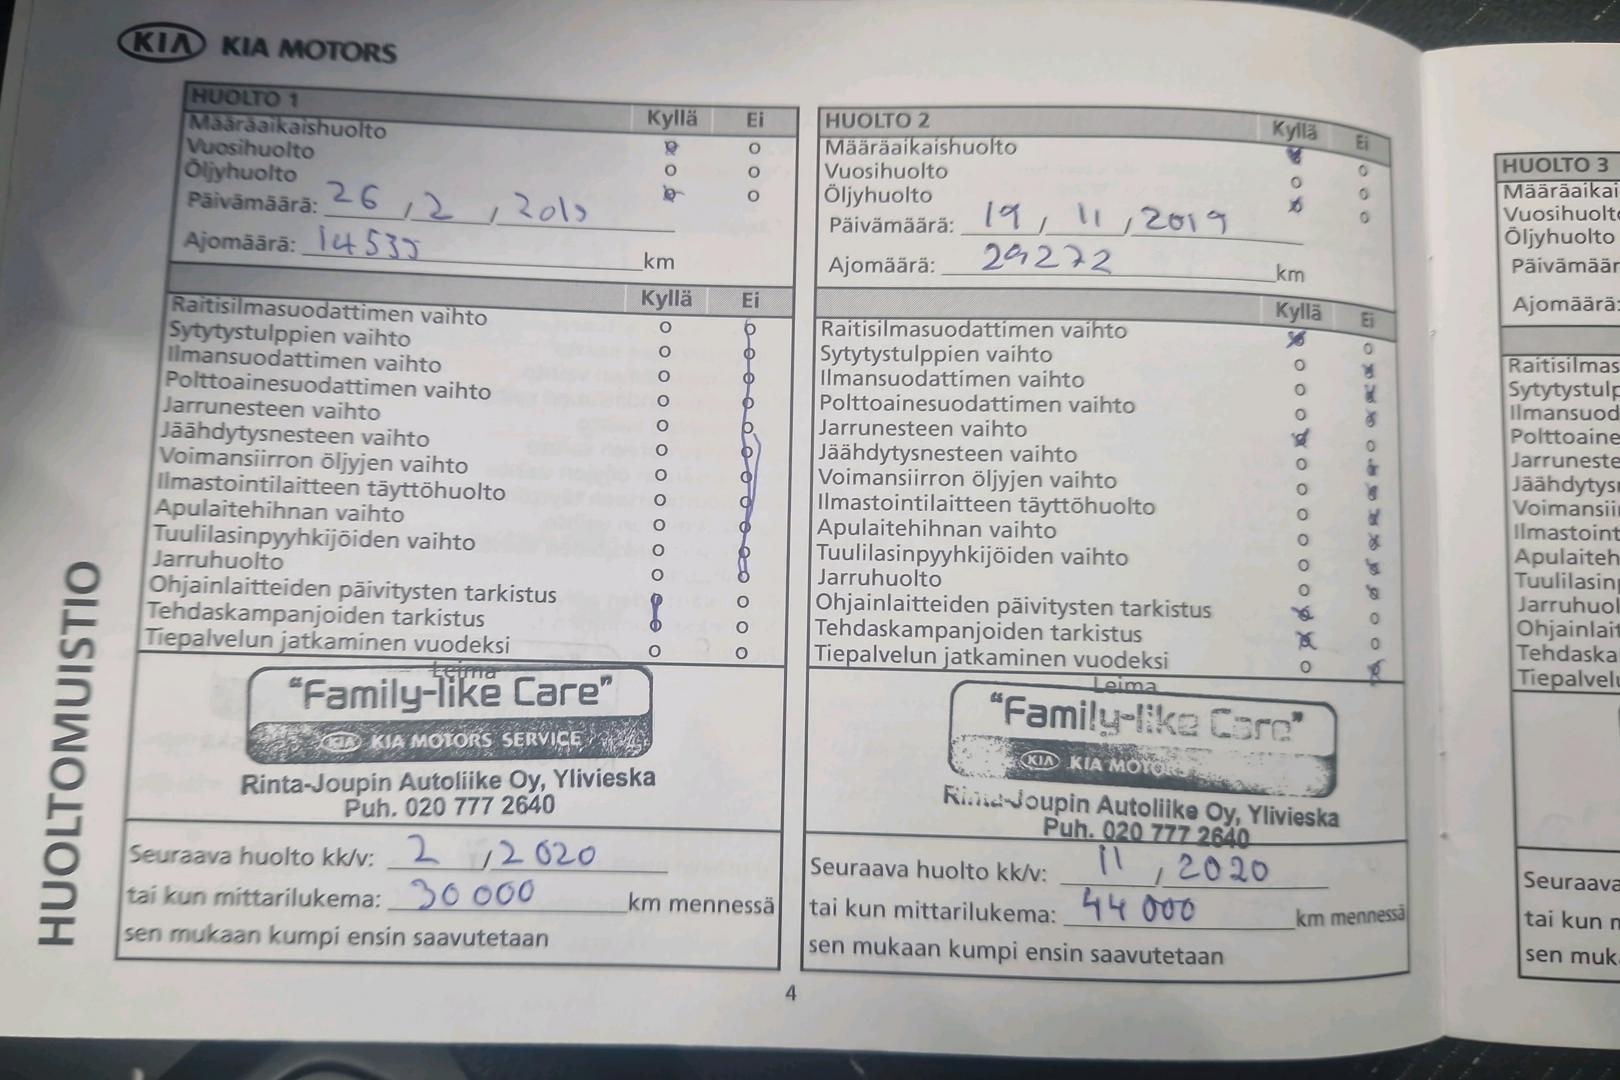 KIA KIA MOTORS
HUOLTOMUISTIO
HUOLTO 1
Kyllä Ei
Määräaikaishuolto
Vuosihuolto
Öljyhuolto
Päivämäärä: 26 / 2 / 2019
Ajomäärä: 14535 km
Kyllä Ei
Raitisilmasuodattimen vaihto
Sytytystulppien vaihto
Ilmansuodattimen vaihto
Polttoainesuodattimen vaihto
Jarrunesteen vaihto
Jäähdytysnesteen vaihto
Voimansiirron öljyjen vaihto
Ilmastointilaitteen täyttöhuolto
Apulaitehihnan vaihto
Tuulilasinpyyhkijöiden vaihto
Jarruhuolto
Ohjainlaitteiden päivitysten tarkistus
Tehdaskampanjoiden tarkistus
Tiepalvelun jatkaminen vuodeksi
Leima
"Family-like Care"
KIA KIA MOTORS SERVICE
Rinta-Joupin Autoliike Oy, Ylivieska
Puh. 020 777 2640
Seuraava huolto kk/v: 2 / 2020
tai kun mittarilukema: 30 000 km mennessä
sen mukaan kumpi ensin saavutetaan
HUOLTO 2
Kyllä Ei
Määräaikaishuolto
Vuosihuolto
Öljyhuolto
Päivämäärä: 19 / 11 / 2019
Ajomäärä: 29272 km
Kyllä Ei
Raitisilmasuodattimen vaihto
Sytytystulppien vaihto
Ilmansuodattimen vaihto
Polttoainesuodattimen vaihto
Jarrunesteen vaihto
Jäähdytysnesteen vaihto
Voimansiirron öljyjen vaihto
Ilmastointilaitteen täyttöhuolto
Apulaitehihnan vaihto
Tuulilasinpyyhkijöiden vaihto
Jarruhuolto
Ohjainlaitteiden päivitysten tarkistus
Tehdaskampanjoiden tarkistus
Tiepalvelun jatkaminen vuodeksi
Leima
"Family-like Care"
KIA KIA MOTORS
Rinta-Joupin Autoliike Oy, Ylivieska
Puh. 020 777 2640
Seuraava huolto kk/v: 11 / 2020
tai kun mittarilukema: 44 000 km mennessä
sen mukaan kumpi ensin saavutetaan
4
HUOLTO 3
Määräaikai
Vuosihuolto
Öljyhuolto
Päivämäär
Ajomäärä:
Raitisilmas
Sytytystulp
Ilmansuod
Polttoaine
Jarruneste
Jäähdytys
Voimansii
Ilmastoint
Apulaiteh
Tuulilasin
Jarruhuol
Ohjainlait
Tehdaska
Tiepalvelu
Seuraava
tai kun
sen muk